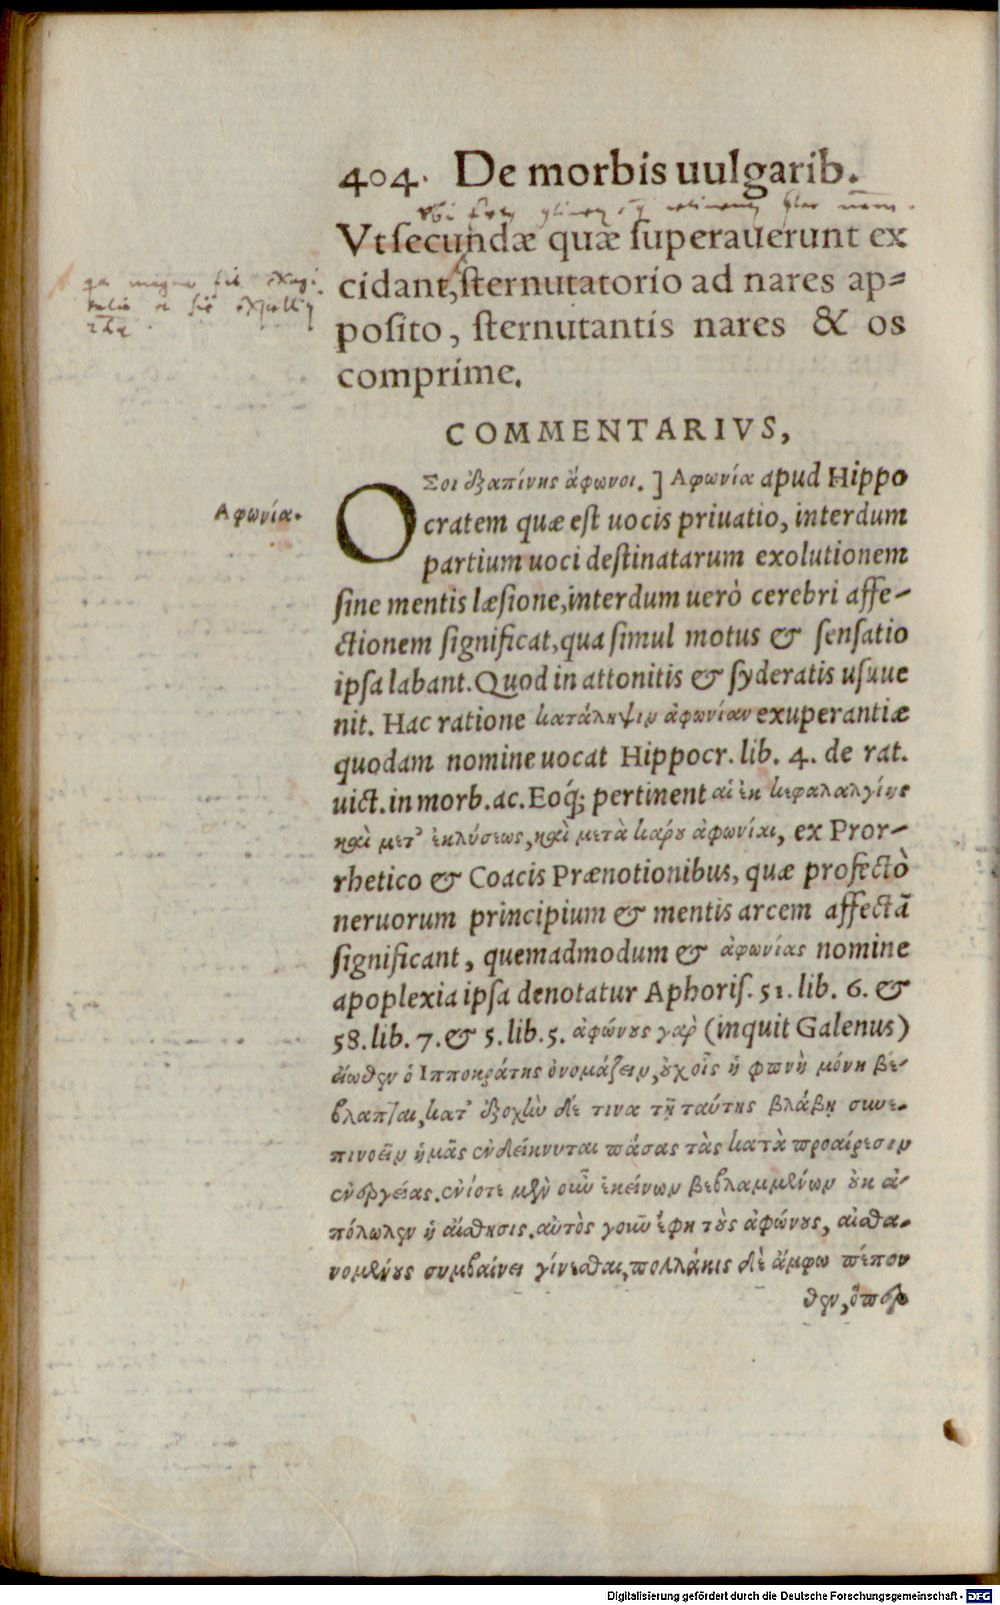 404. De morbis uulgarib.
Vt secundæ quæ superauerunt ex
cidant, sternutatorio ad nares ap-
posito, sternutantis nares & os
comprime.
COMMENTARIVS,
ΟΣοι ἐξαπίνης ἄφωνοι.] Αφωνία apud Hippo
Αφωνία.
cratem quæ est uocis priuatio, interdum
partium uoci destinatarum exolutionem
sine mentis læsione, interdum uerò cerebri affe-
ctionem significat, qua simul motus & sensatio
ipsa labant. Quod in attonitis & syderatis usuue
nit. Hac ratione κατάληψιν ἀφωνίαν exuperantiæ
quodam nomine uocat Hippocr. lib. 4. de rat.
uict. in morb. ac. Eoq́; pertinent αἱ ἐκ κεφαλαλγίης
καὶ μετ᾽ ἐκλύσεως, καὶ μετὰ κάρου ἀφωνίαι, ex Pror-
rhetico & Coacis Prænotionibus, quæ profectò
neruorum principium & mentis arcem affectã
significant, quemadmodum & ἀφωνίας nomine
apoplexia ipsa denotatur Aphoris. 51. lib. 6. &
58. lib. 7. & 5. lib. 5. ἀφώνους γαρ̀ (inquit Galenus)
εἴωθεν ὁ Ιπποκράτης ὀνομάζειν, οὐχ οἷς ἡ φωνὴ μόνη βέ-
βλαπται, κατ᾽ ἐξοχὴν δέ τινα τῇ ταύτης βλάβῃ συνε-
πινοεῖν ἡμᾶς ἐνδείκνυται πάσας τὰς κατὰ προαίρεσιν
ἐνεργείας. ἐνίοτε μὲν οὖν ἐκείνων βεβλαμμένων οὐκ ἀ-
πόλωλεν ἡ αἴσθησις. αὐτὸς γοῦν ἔφη τοὺς ἀφώνους, αἰσθα-
νομένους συμβαίνει γίνεσθαι, πολλάκις δὲ ἄμφω πέπον
θεν, ὅπερ
Digitalisierung gefördert durch die Deutsche Forschungsgemeinschaft - DFG